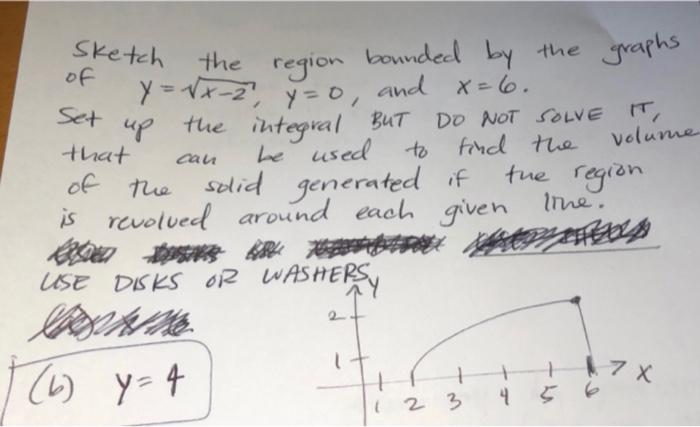 Sketch the region bounded by the graphs
of y = √x-2, y = 0, and x = 6.
Set up the integral BUT DO NOT SOLVE IT,
that can be used to find the volume
of the solid generated if the region
is revolved around each given line.
USE DISKS OR WASHERS
y
2
1
(b) y = 4
1 2 3 4 5 6 x